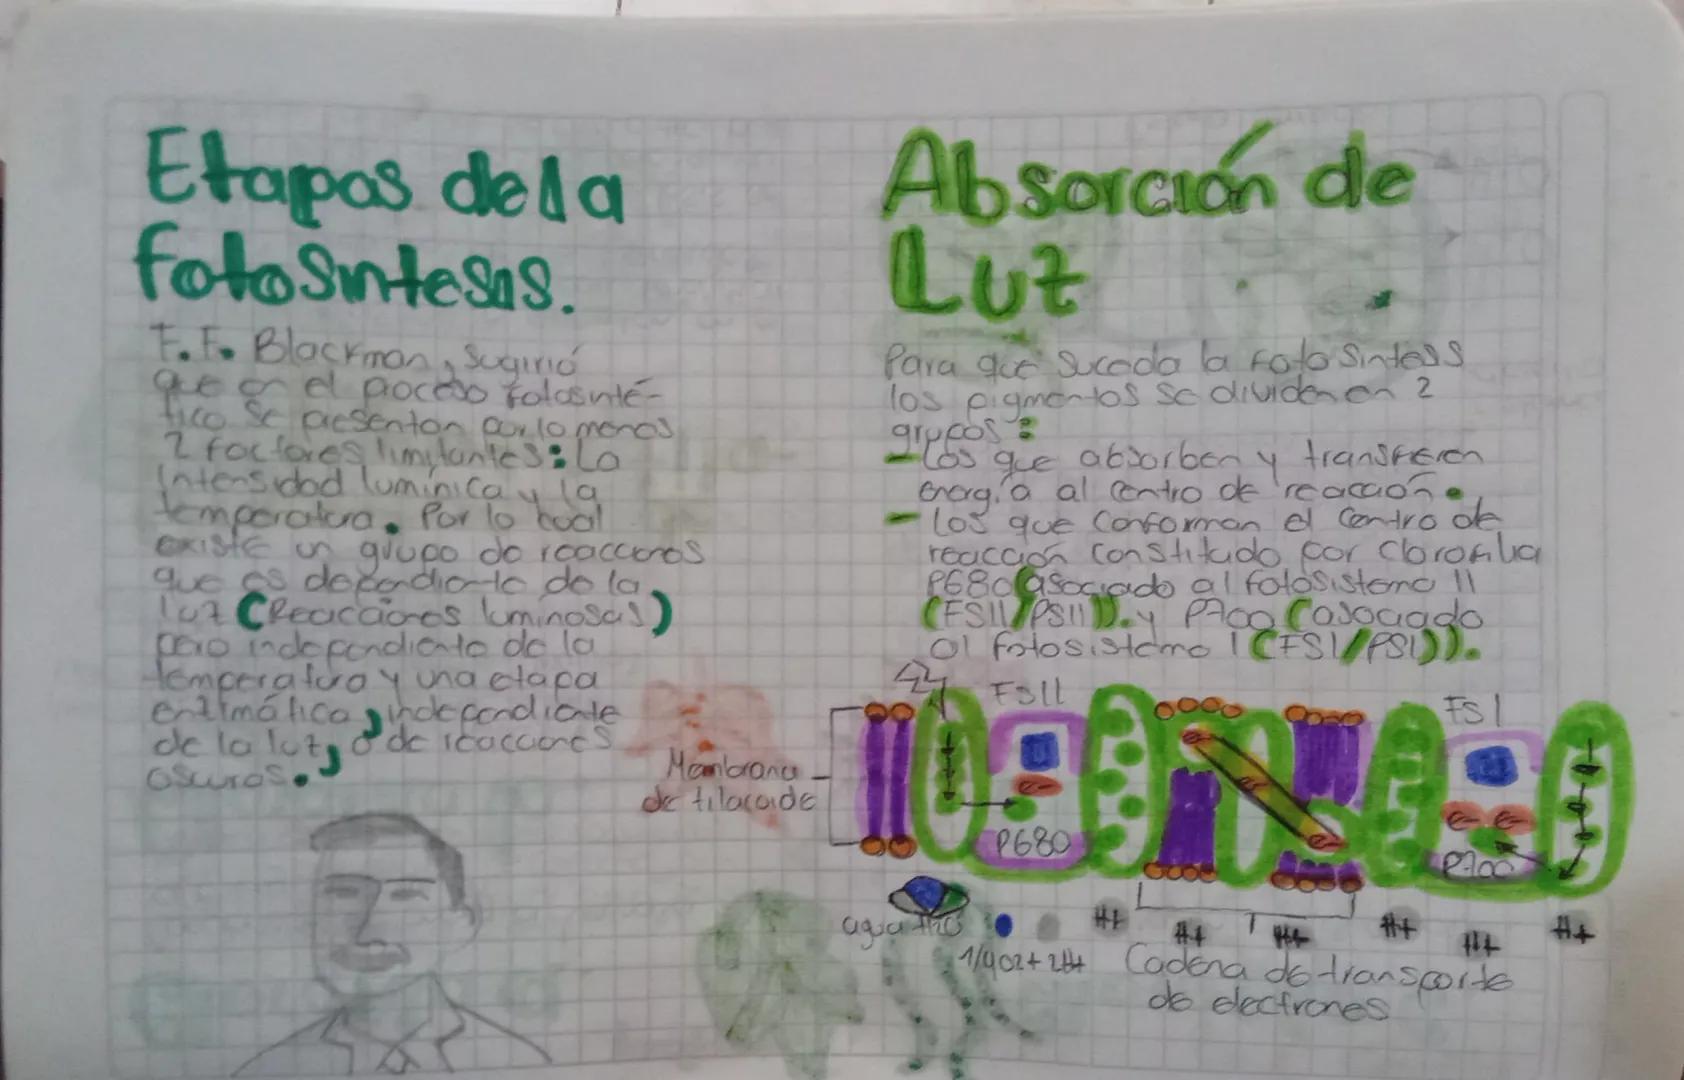 Etapas de la
fotosíntesis.
F.F. Blackman, sugirió
que en el proceso fotosinté-
tico se presentan por lo menos
2 factores limitantes: La
intensidad lumínica y la
temperatura. Por lo cual
existe un grupo de reacciones
que es dependiente de la
luz (Reacciones luminosas)
pero independiente de la
temperatura y una etapa
enzimática, independiente
de la luz, o de reacciones
oscuras.
Absorción de
Luz
Para que suceda la fotosintess
los pigmentos se dividen en 2
grupos:
- Los que absorben y transfieren
energía al centro de reacción.
- Los que conforman el centro de
reacción constituido por clorofila
P680 (asociado al fotosistema II
(FSII/PSII)). y P700 (asociado
al fotosistema I (FSI/PSI)).
FSII
FSI
Membrana
de tilacoide
P680
P700
agua H2O
1/402 + 2H+
H+
H+
H+
H+
H+
H+
Cadena de transporte
de electrones